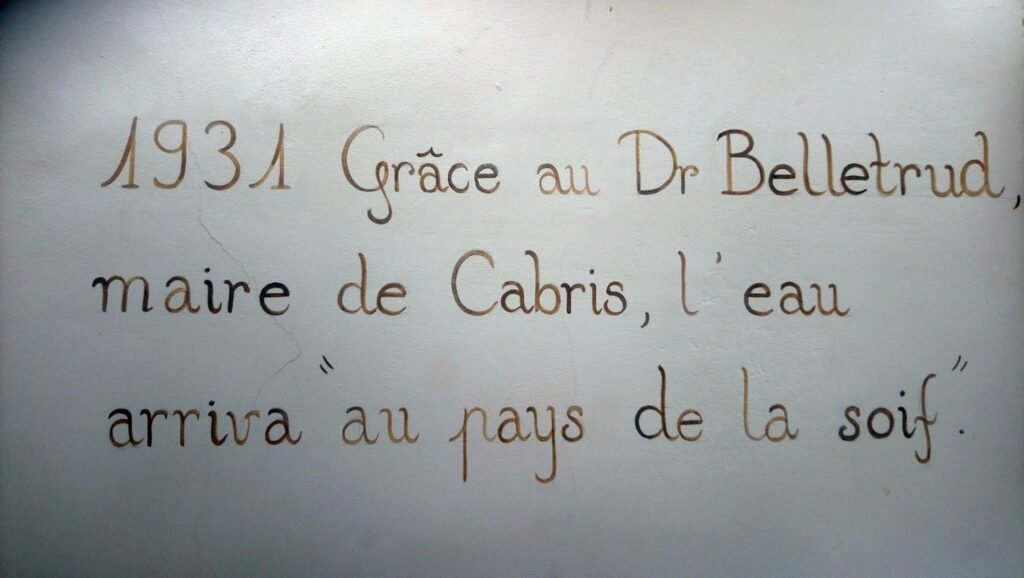 1931 Grâce au Dr Belletrud,
maire de Cabris, l'eau
arriva "au pays de la soif".